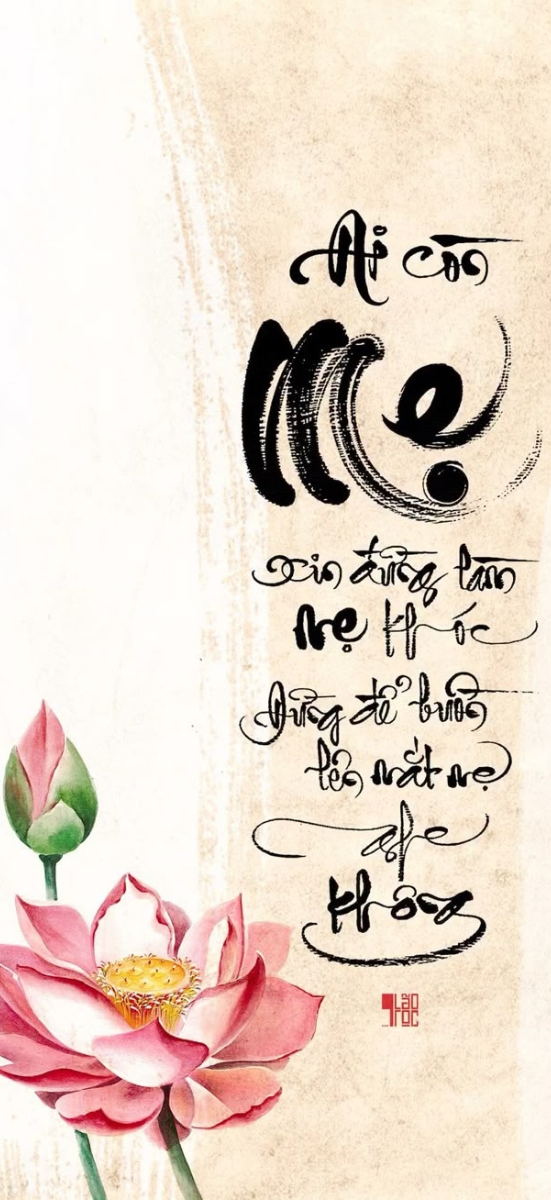 Ai còn
Mẹ
Xin đừng làm
mẹ khóc
Đừng để buồn
lên mắt mẹ
nghe
không